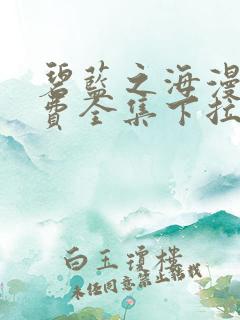 碧蓝之海漫
费全集下拉
白玉琼楼
未经同意禁止转载